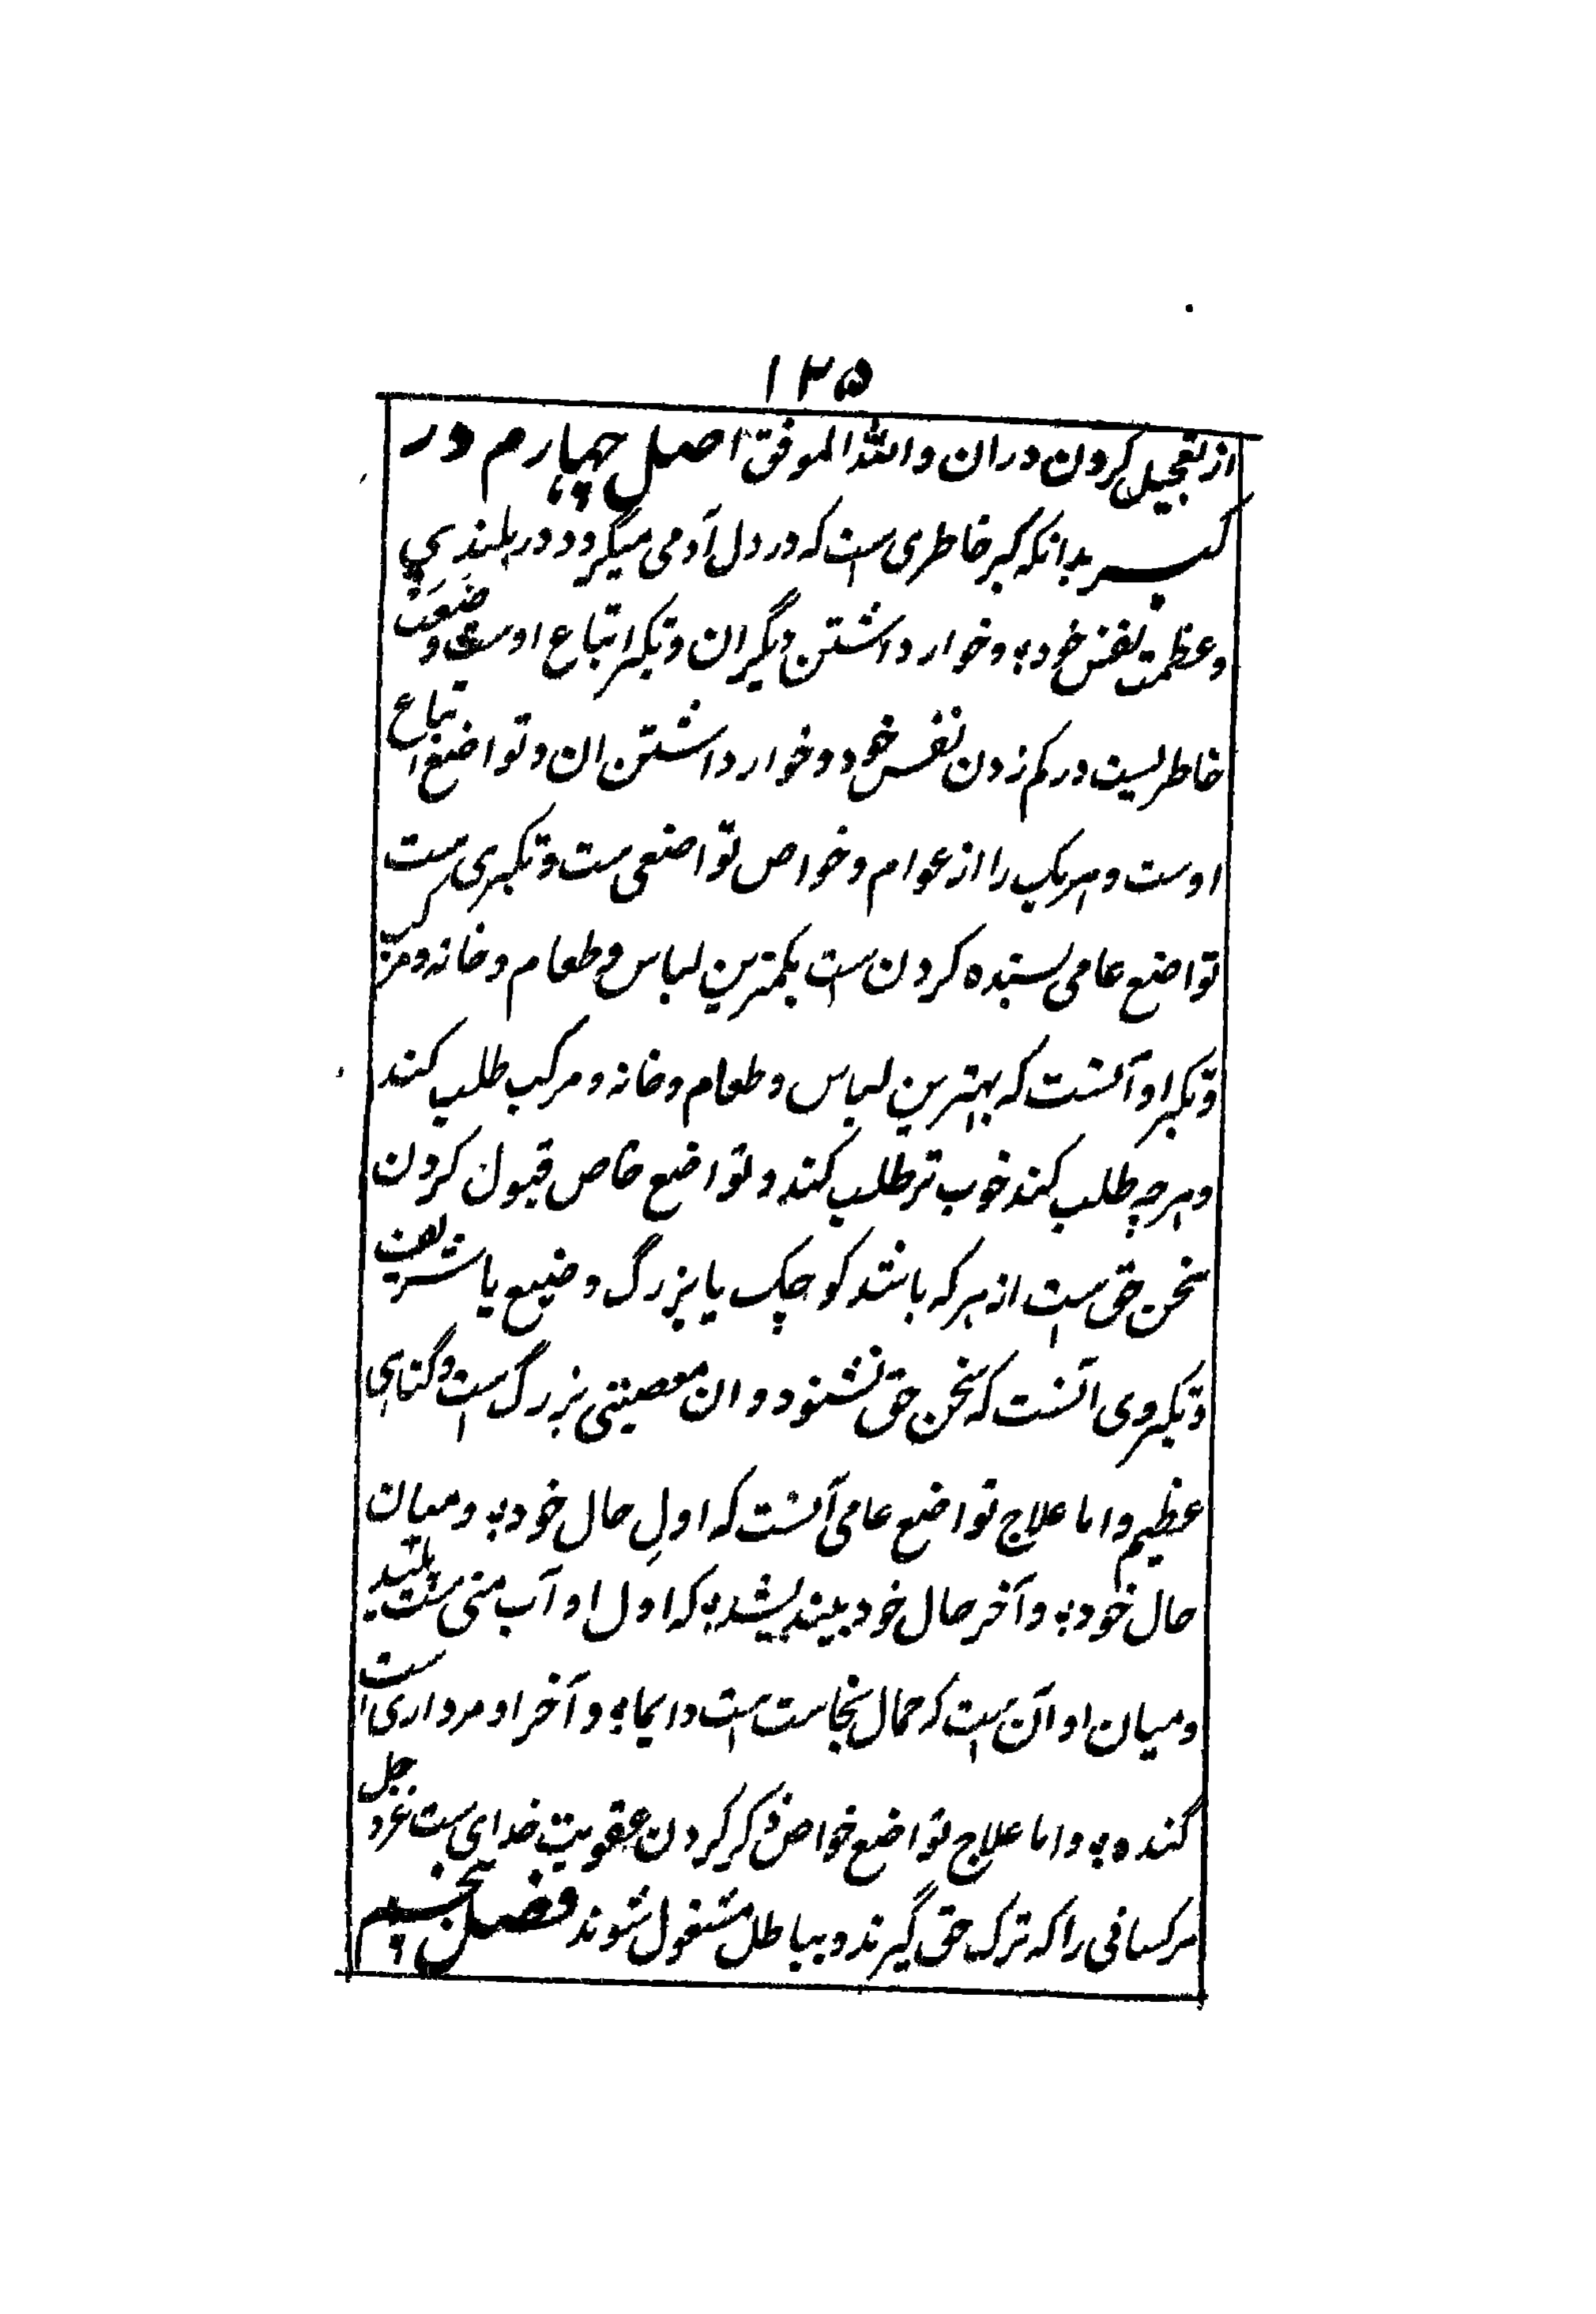 ۱۲۵
از تعجیل کردن دران والله الموفق اصل چهارم در
کبر بدانکه کبر خاطری است که در دل آدمی میگردد در بلندیِ
و عظمت نفس خود و خوار داشتن دیگران و تکبر اتباع اوست و
خاطریست در کم زدن نفس خود و خوار داشتن ان و تواضع اتباع
اوست و هریک را از عوام و خواص تواضعی ست و تکبری ست
تواضع عامی بسنده کردن است بکمترین لباس و طعام و خانه و مرکب
و تکبر او آنست که بهترین لباس و طعام و خانه و مرکب طلب کند
و هرچه طلب کند خوب تر طلب کند و تواضع خاص قبول کردن
سخن حق است از هر که باشد کوچک یا بزرگ وضیع یا شریف
و تکبر وی آنست که سخن حق نشنود و ان معصیتی بزرگ است و گناهی
عظیم و اما علاج تواضع عامی آنست که اولِ حال خود و میان
حال خود و آخر حال خود بیندیشد که اول او آب منی ست پلید
و میان او آن است که حمال نجاست است دایما و آخر او مرداری است
گنده و اما علاج تواضع خواص ذکر کردن عقوبت خدای ست عز و جل
مر کسانی را که ترک حق گیرند و بباطل مشغول شوند فصل پنجم